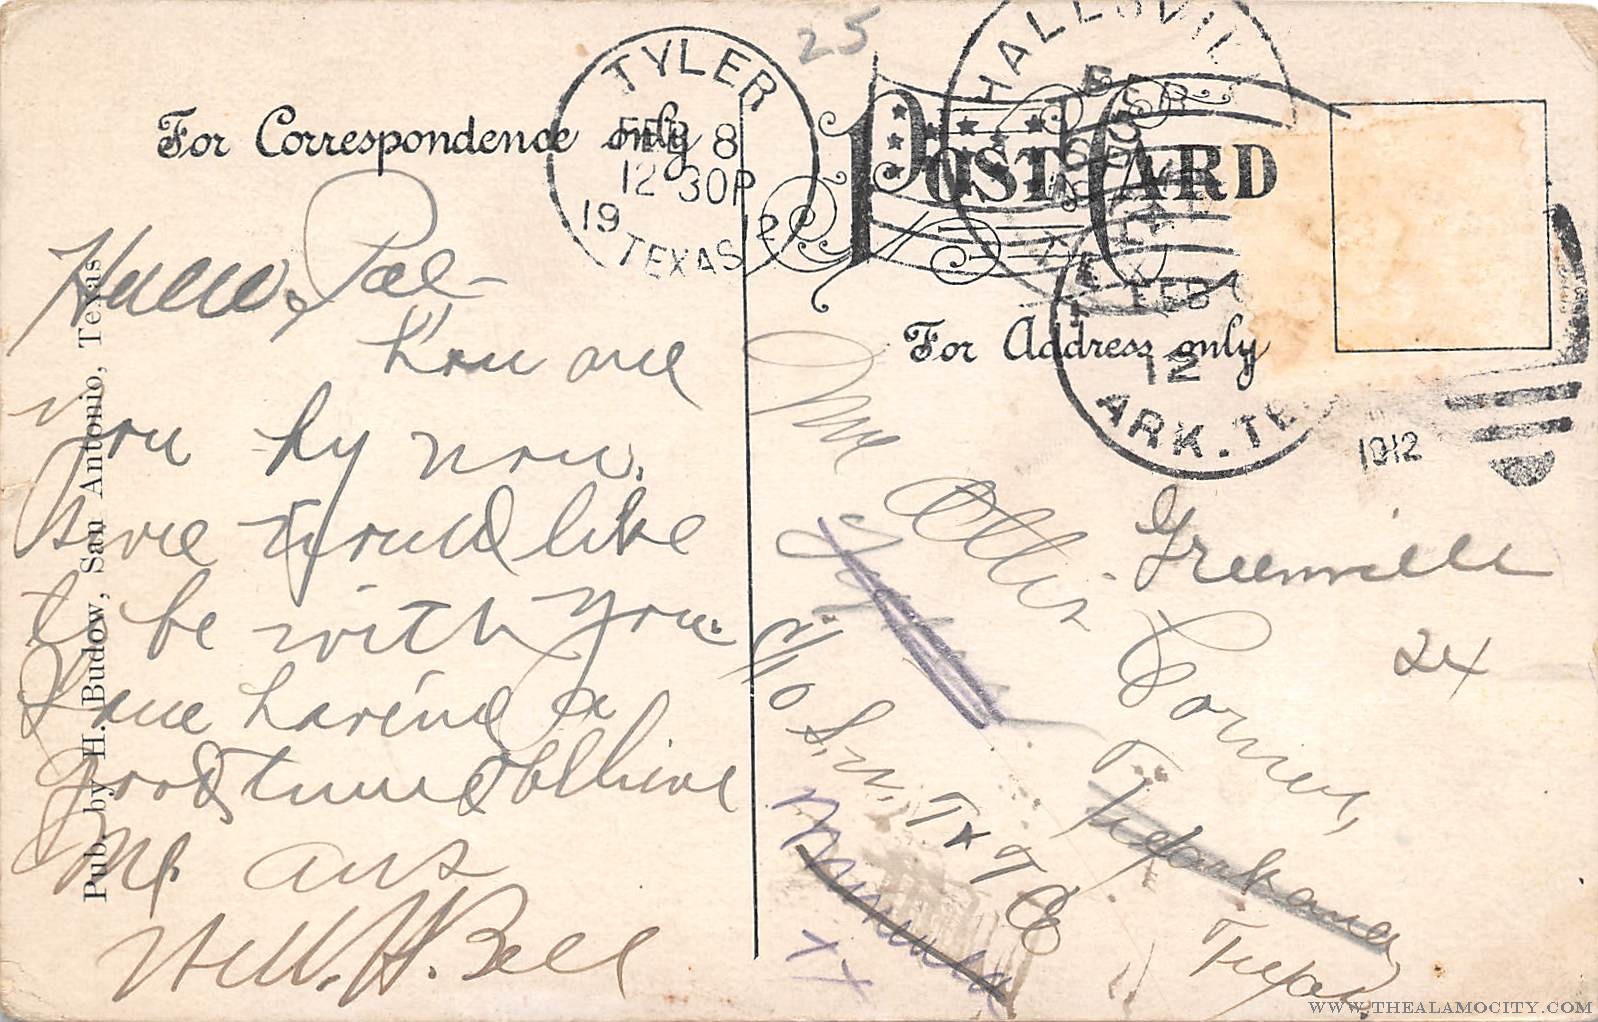 25
TYLER
FEB 8
12 30P
19 2
TEXAS
HALLSVILL
TEX
TEXARKANA
FEB
12
ARK. TEX
1912
For Correspondence only
POST CARD
For Address only
Pub. by H. Budow, San Antonio, Texas
Hello, Pal-
How are
you by now.
Sure would like
to be with you.
Have having a
good time & believe
me. ans
Will. H. Bell
Mr Ollis Corner,
c/o S.W. T & T Co
Texarkana
Texas
Greenville
24
Mineola
TX
WWW.THEALAMOCITY.COM